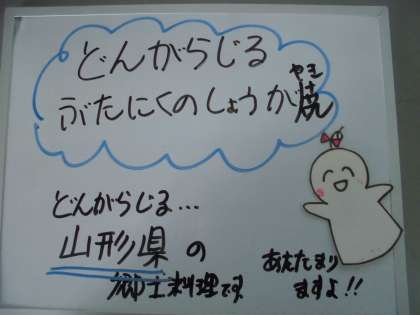 どんがらじる
ぶたにくのしょうが焼
やき
どんがらじる…
山形県の
郷土料理です
あたたまり
ますよ!!